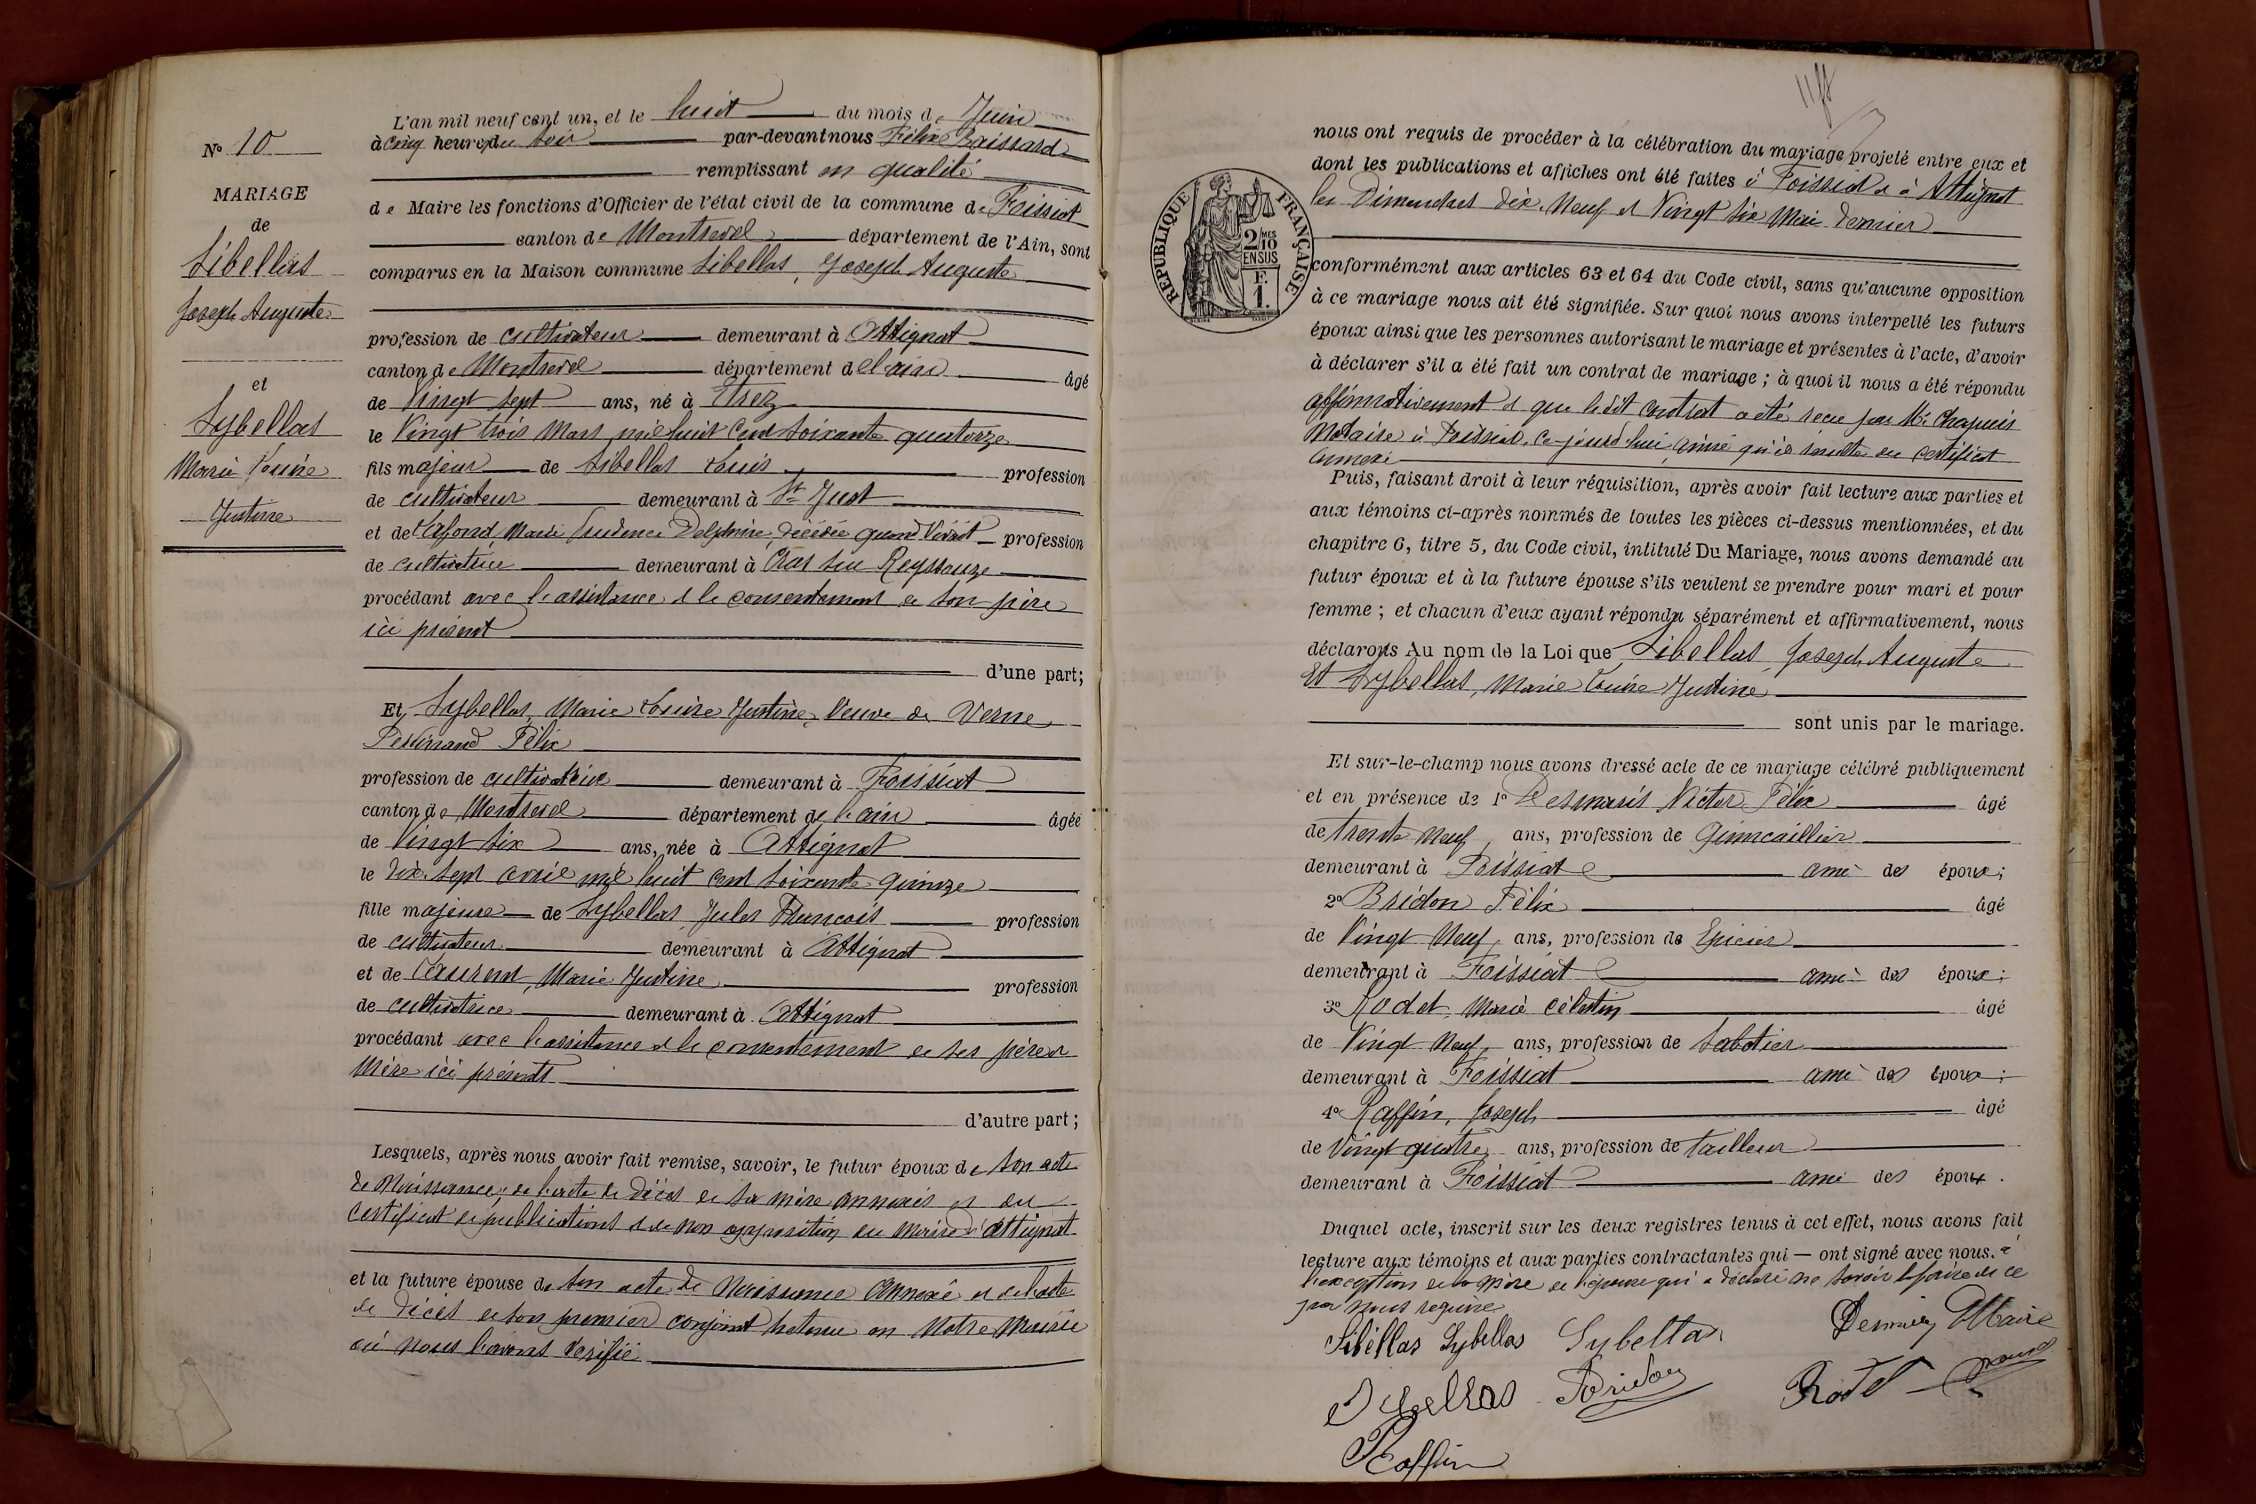 N° 10
MARIAGE
de
Sibellas
Joseph Auguste
et
Sybellas
Marie Louise
Justine
L'an mil neuf cent un, et le huit du mois de Juin
à cinq heures du soir par-devant nous Félix
remplissant en qualité
de Maire les fonctions d'Officier de l'état civil de la commune de Foissiat
canton de Montrevel département de l'Ain, sont
comparus en la Maison commune Sibellas, Joseph Auguste
profession de cultivateur demeurant à Attignat
canton de Montrevel département de l'ain âgé
de Vingt sept ans, né à Etrez
le Vingt trois Mars mil huit Cent soixante quatorze
fils majeur de Sibellas Louis profession
de cultivateur demeurant à St Just
et de Lafond, Marie Prudence Delphine, décédée quand Vivait profession
de cultivatrice demeurant à Cras sur Reyssouze
procédant avec l'assistance et le consentement de son père
ici présent
d'une part;
Et Sybellas, Marie Louise Justine, Veuve de Verne
Ferdinand Félix
profession de cultivatrice demeurant à Foissiat
canton de Montrevel département de l'ain âgée
de Vingt six ans, née à Attignat
le dix sept avril mil huit cent soixante quinze
fille majeure de Sybellas, Jules François profession
de cultivateur demeurant à Attignat
et de Laurent, Marie Justine profession
de cultivatrice demeurant à Attignat
procédant avec l'assistance et le consentement de ses père et
Mère ici présents
d'autre part;
Lesquels, après nous avoir fait remise, savoir, le futur époux de son acte
de Naissance, de l'acte de Décès de sa mère annexés et du
Certificat de publications et de non opposition du Maire d'Attignat
et la future épouse de son acte de Naissance annexé et de l'acte
de décès de son premier conjoint retenu en Notre Mairie
où Nous l'avons Vérifié
RÉPUBLIQUE FRANÇAISE
2/10MES
EN SUS
F.
1.
nous ont requis de procéder à la célébration du mariage projeté entre eux et
dont les publications et affiches ont été faites à Foissiat et à Attignat
les Dimanches dix Neuf et Vingt six Mai dernier
conformément aux articles 63 et 64 du Code civil, sans qu'aucune opposition
à ce mariage nous ait été signifiée. Sur quoi nous avons interpellé les futurs
époux ainsi que les personnes autorisant le mariage et présentes à l'acte, d'avoir
à déclarer s'il a été fait un contrat de mariage; à quoi il nous a été répondu
affirmativement et que ledit contrat a été recu par Me Chapuis
Notaire à Foissiat, ce-jourd'hui, ainsi qu'il résulte du certificat
annexé
Puis, faisant droit à leur réquisition, après avoir fait lecture aux parties et
aux témoins ci-après nommés de toutes les pièces ci-dessus mentionnées, et du
chapitre 6, titre 5, du Code civil, intitulé Du Mariage, nous avons demandé au
futur époux et à la future épouse s'ils veulent se prendre pour mari et pour
femme; et chacun d'eux ayant répondu séparément et affirmativement, nous
déclarons Au nom de la Loi que Sibellas Joseph Auguste
Et Sybellas, Marie Louise Justine
sont unis par le mariage.
Et sur-le-champ nous avons dressé acte de ce mariage célébré publiquement
et en présence de 1° Desmaris Victor Félix âgé
de trente Neuf ans, profession de Quincaillier
demeurant à Foissiat ami des époux;
2° Bridon Félix âgé
de Vingt Neuf ans, profession de Epicier
demeurant à Foissiat ami des époux;
3° Rodet, Marie Célestin âgé
de Vingt Neuf ans, profession de Sabotier
demeurant à Foissiat ami des époux;
4° Raffin, Joseph âgé
de Vingt quatre ans, profession de tailleur
demeurant à Foissiat ami des époux.
Duquel acte, inscrit sur les deux registres tenus à cet effet, nous avons fait
lecture aux témoins et aux parties contractantes qui — ont signé avec nous. à
l'exception de la Mère de l'épouse qui a déclaré ne savoir le faire de ce
par Nous requise
Sibellas Sybellas Sybellas
Sybellas Bridon Rodet
Raffin